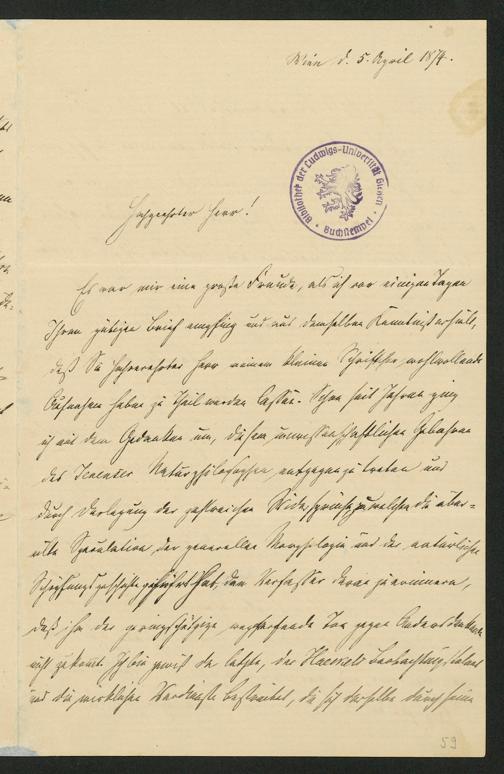 Wien d. 5. April 1874.
Bibliothek der Ludwigs-Universität Giesen
Buchstempel
Hochgeehrter Herr!
Es war mir eine große Freude, als ich vor einigen Tagen
Ihren gütigen Brief empfing und aus demselben Kenntniß erhielt,
daß Sie hochverehrter Herr meinem kleinen Schriftchen wohlwollende
Aufnahme haben zu Theil werden lassen. Schon seit Jahren ging
ich mit dem Gedanken um, diesem unwissenschaftlichen Gebahren
des Jenenser Naturphilosophen entgegenzutreten und
durch Darlegung der zahlreichen Widersprüche zu welchen die über-
eilte Speculation, der generellen Morphologie und der natürlichen
Schöpfungsgeschichte geführt hat, den Verfasser daran zu erinnern,
daß ihm der geringschätzige wegwerfende Ton gegen Andersdenkende
nicht zukomt. Ich bin gewiß der letzte, der Haeckels Beobachtungstalent
und die wirklichen Verdienste bestreitet, die sich derselbe durch seine
59